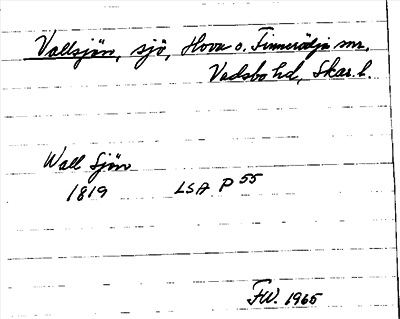 Vallsjön, sjö, Hova o. Finnerödja snr.
Vadsbo hd, Skar. l.
Wall Sjön
1819 LSA P 55
FW. 1965